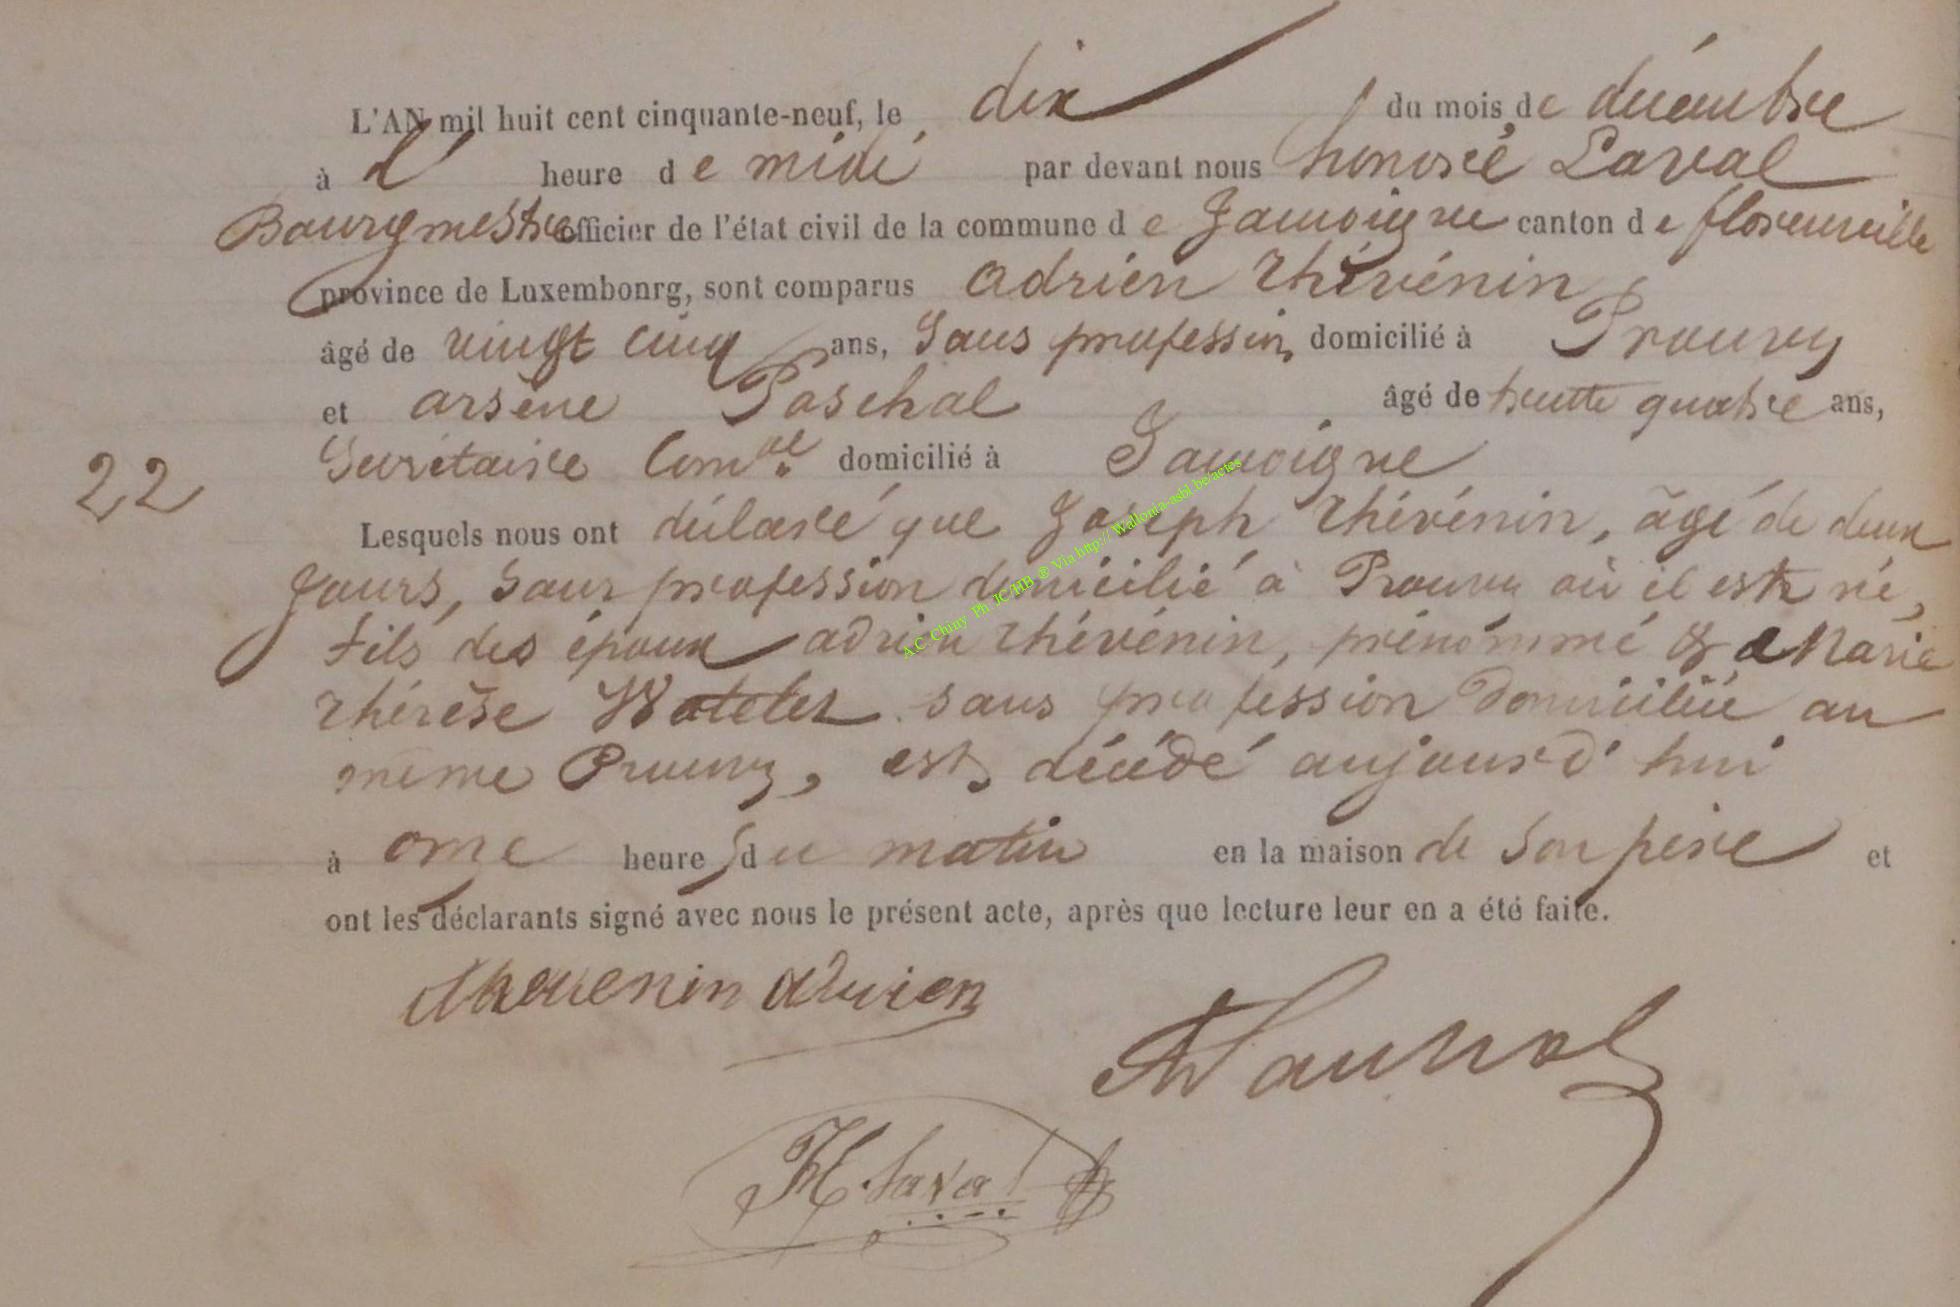 L'AN mil huit cent cinquante-neuf, le dix du mois de décembre
à l' heure de midi par devant nous honoré Laval
Bourgmestre officier de l'état civil de la commune de Jamoigne canton de florenville
province de Luxembonrg, sont comparus adrien thévénin
âgé de vingt cinq ans, Sans profession domicilié à Prouvy
et arsène Paschal âgé de trente quatre ans,
Secrétaire Comal. domicilié à Jamoigne
22
Lesquels nous ont déclaré que Joseph thévénin, âgé de deux
jours, sans profession domicilié à Prouvy où il est né,
fils des époux adrien thévénin, prénommé & de Marie
thérèse Watelet sans profession domiciliée au
même Prouvy, est décédé aujourd'hui
à onze heures du matin en la maison de son père et
ont les déclarants signé avec nous le présent acte, après que lecture leur en a été faite.
thevenin adrien
H. Laval
A.C. Chiny Ph JC/HB ® Via http://Wallonia-asbl.be/actes